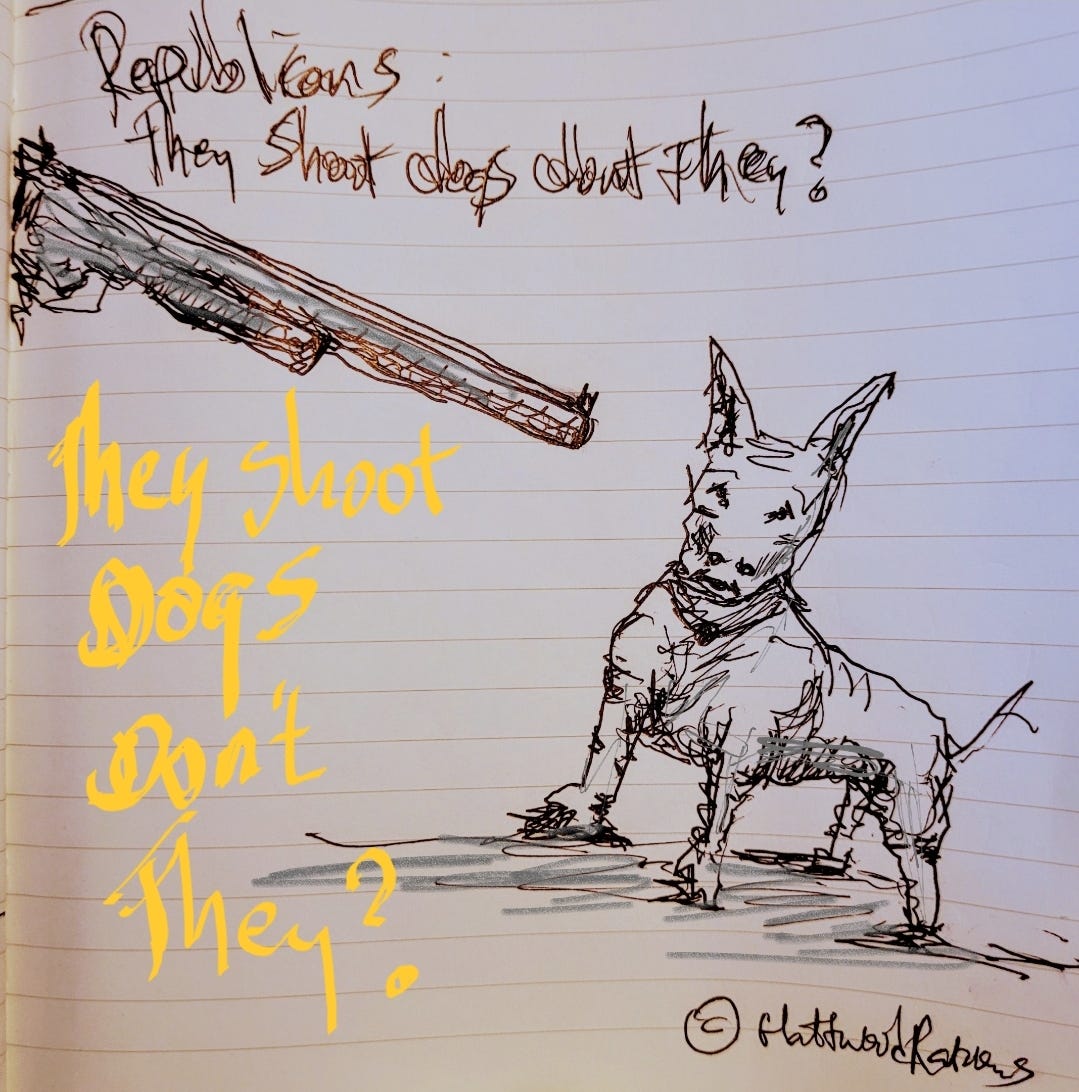 Republicans:
They Shoot dogs dont they?
They shoot
Dogs
Don't
They?
©